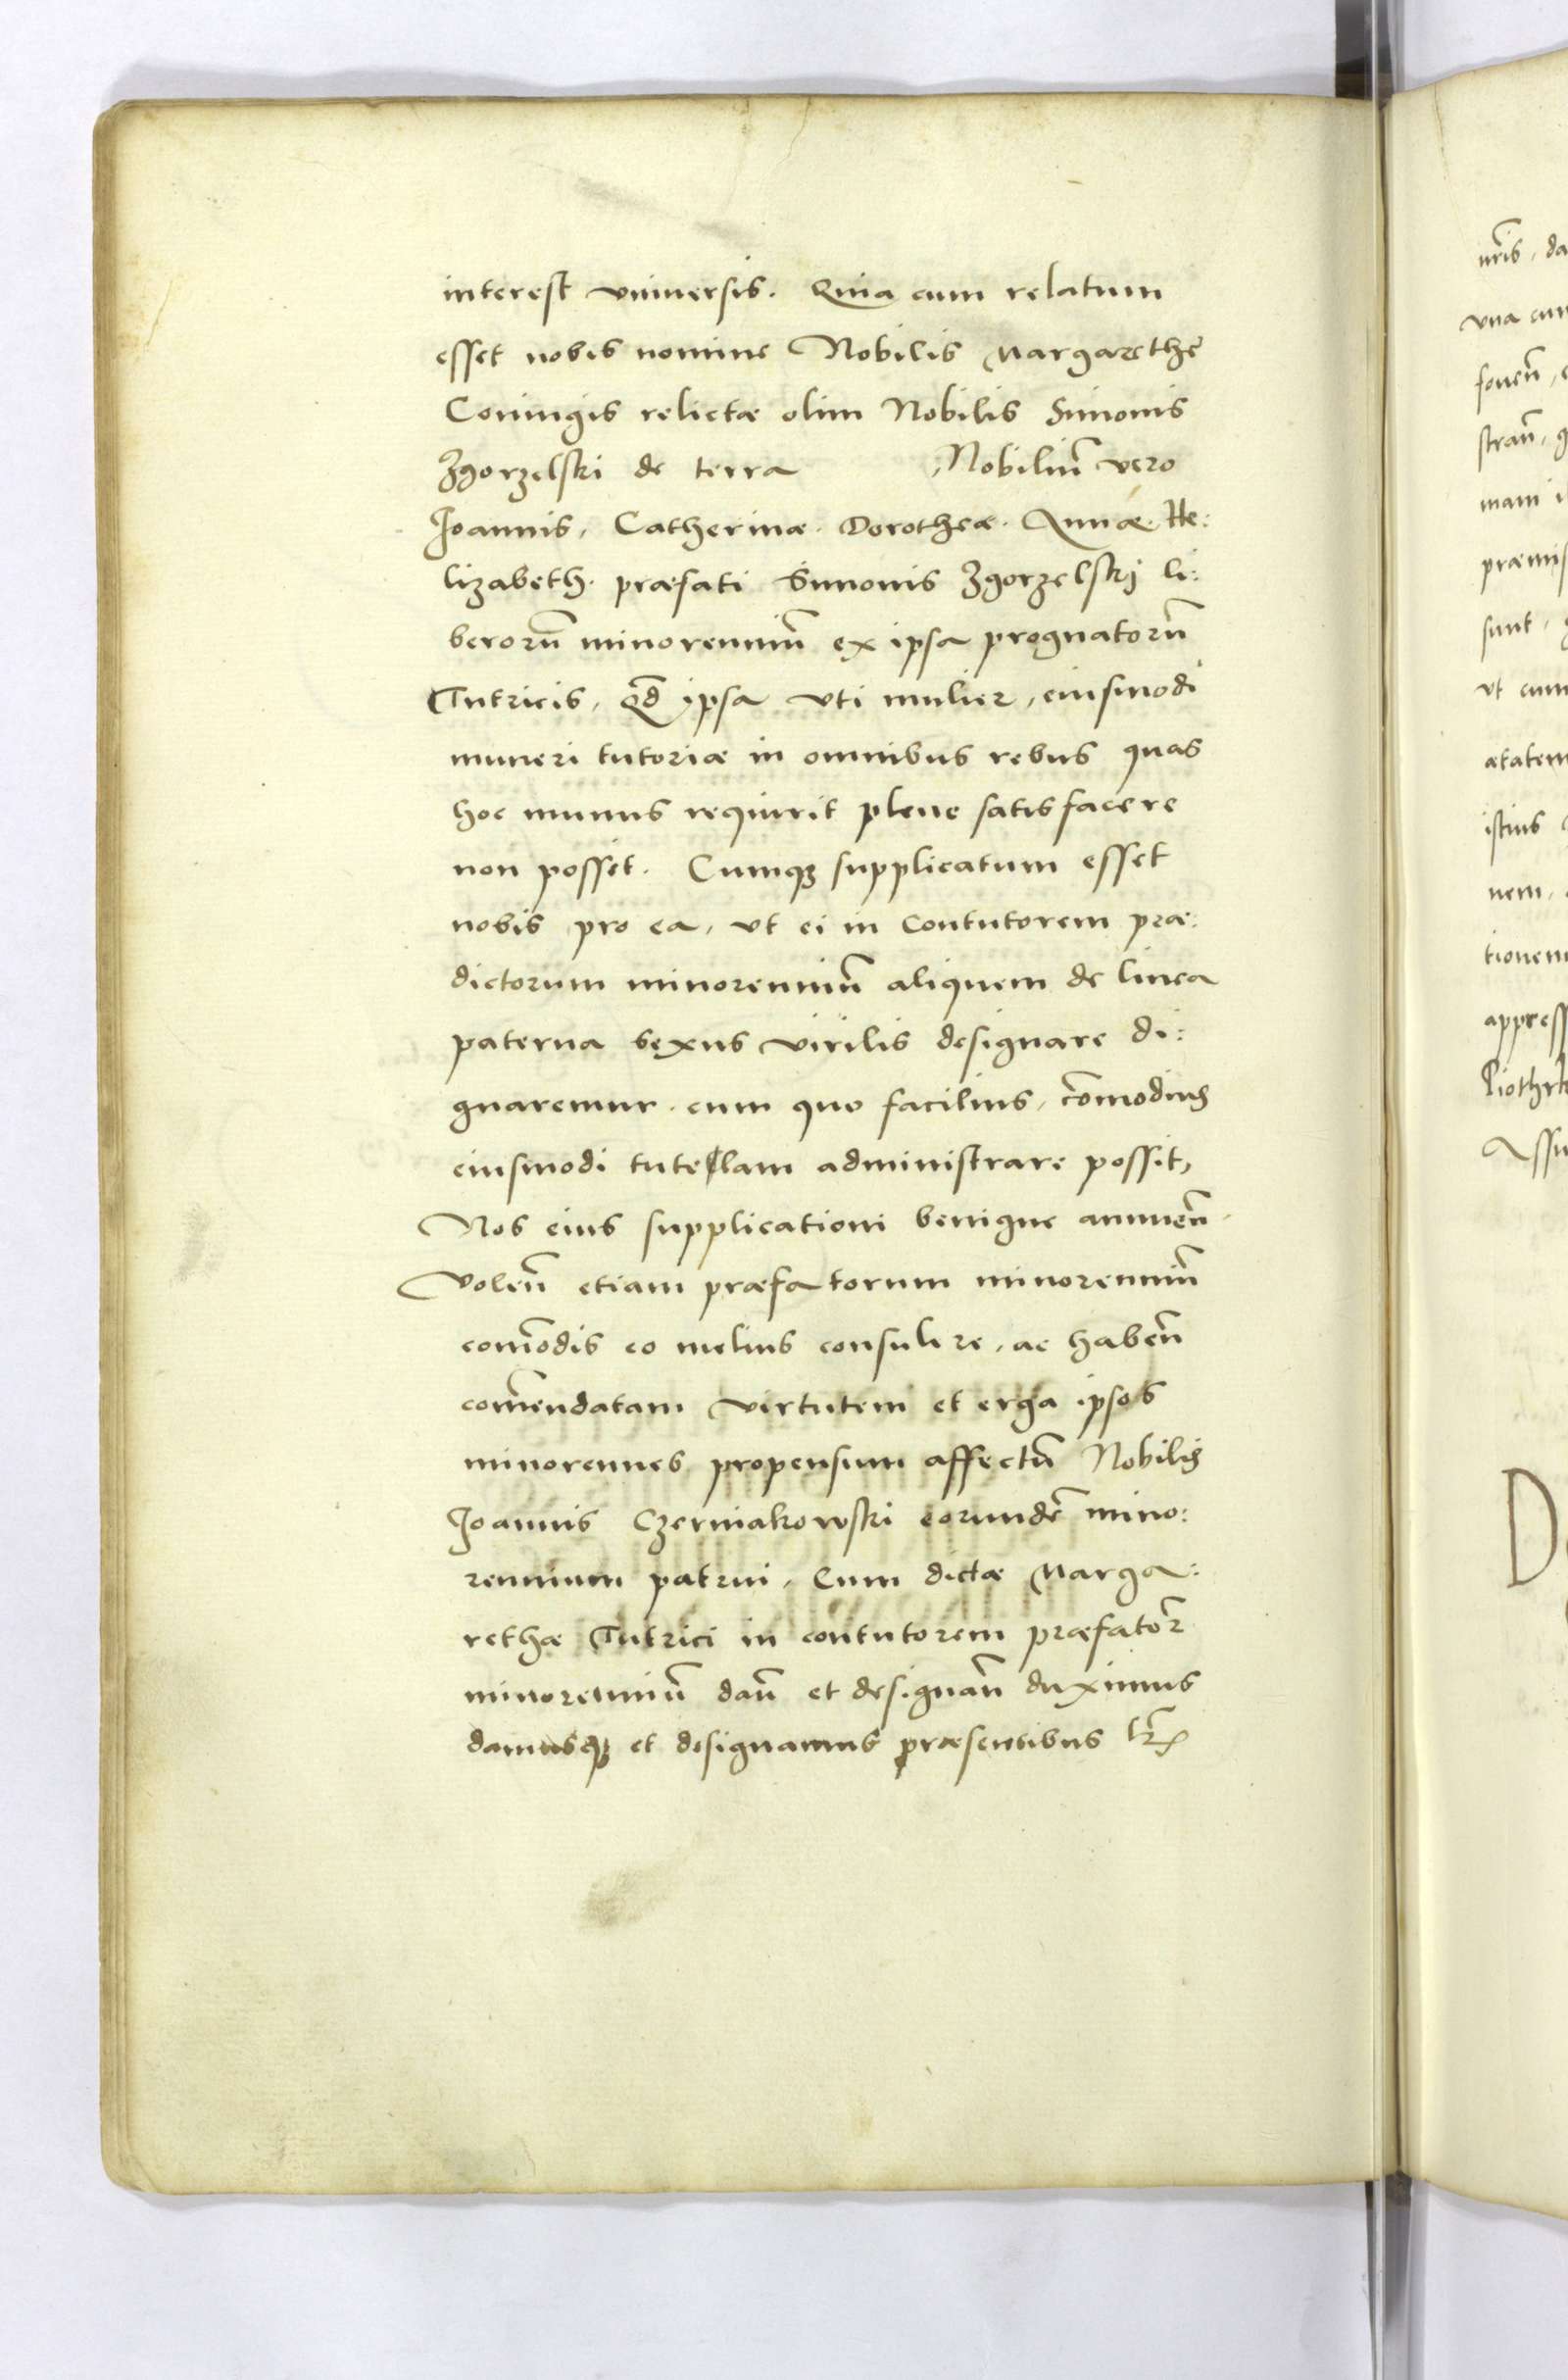 interest vniuersis. Quia cum relatum
esset nobis nomine Nobilis Margarethę
Coniugis relictæ olim Nobilis Simonis
Zgorzelski de terra , Nobiliũ vero
Joannis, Catherinæ. Dorotheæ. Annæ. He:
lizabeth. præfati Simonis Zgorzelskj li:
berorũ minorenniũ ex ipsa prognatorũ
Tutricis, qđ ipsa vti mulier, eiusmodi
muneri tutoriæ in omnibus rebus quas
hoc munus requirit plene satisfacere
non posset. Cumqȝ supplicatum esset
nobis pro ea, vt ei in Contutorem præ:
dictorum minorenniũ aliquem de linea
paterna sexus virilis designare di:
gnaremur. cum quo facilius, com̃odius
eiusmodi tutelam administrare possit,
Nos eius supplicationi benigne annueñ.
Voleñ etiam præfatorum minorenniũ
com̃odis eo melius consulere, ac habeñ
com̃endatam virtutem et erga ipsos
minorennes propensum affectũ Nobilis
Joannis Czerniakowski eorundẽ mino:
rennium patrui, Eum dictæ Marga:
rethæ Tutrici in contutorem præfator̃
minorenniũ dañ et designañ duximus
damusqȝ et designamus præsentibus lr̃
nr̃is, da
vna cum
foueñ,
strañ,
mam
præmis
sunt,
vt cum
ætatem
istius
nem,
tionem
appress
Piothrk
Assu
D